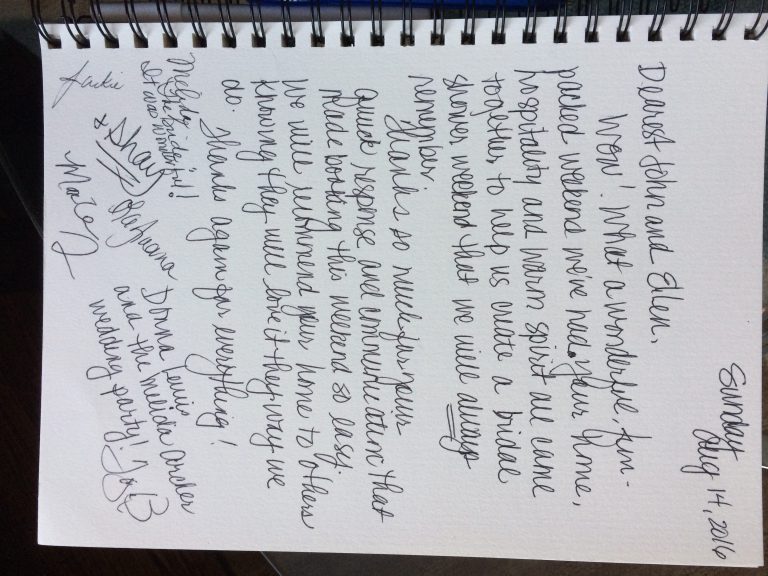 Sunday
Aug 14, 2016
Dearest John and Ellen,
Wow! What a wonderful, fun-
packed weekend we've had. Your home,
hospitality and warm spirit all came
together to help us create a bridal
shower weekend that we will always
remember.
Thanks so much for your
quick response and communication that
made booking this weekend so easy.
We will recommend your home to others
knowing they will love it they way we
do. Thanks again for everything!
Donna Lewis
and the Melida Archer
wedding party!
Melida
The bride!
It was wonderful!
Jackie